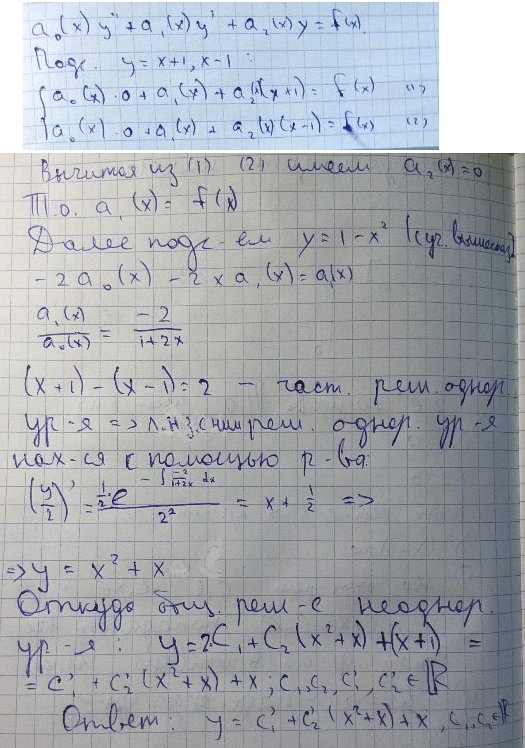 a₀(x) y'' + a₁(x) y' + a₂(x) y = f(x).
Подс. y = x+1, x-1 :
{ a₀(x)·0 + a₁(x) + a₂(x)(x+1) = f(x) (1)
{ a₀(x)·0 + a₁(x) + a₂(x)(x-1) = f(x) (2)
Вычитая из (1) (2) имеем a₂(x)=0
Т.о. a₁(x) = f(x)
Далее подс-ем y = 1-x²
-2a₀(x) - 2x a₁(x) = a₁(x)
a₁(x)/a₀(x) = -2/(1+2x)
(x+1)-(x-1)=2 – част. реш. однор.
ур-я => л.н.з. с ним реш. однор. ур-я
нах-ся с помощью р-ва:
(y/2)' = (½·e^(-∫ -2/(1+2x) dx))/2² = x + ½ =>
=> y = x² + x
Откуда общ. реш-е неоднор.
ур-я : y = 2·C₁ + C₂(x²+x) + (x+1) =
= C₁' + C₂'(x²+x) + x ; C₁, C₂, C₁', C₂' ∈ ℝ
Ответ: y = C₁' + C₂'(x²+x) + x , C₁, C₂ ∈ ℝ